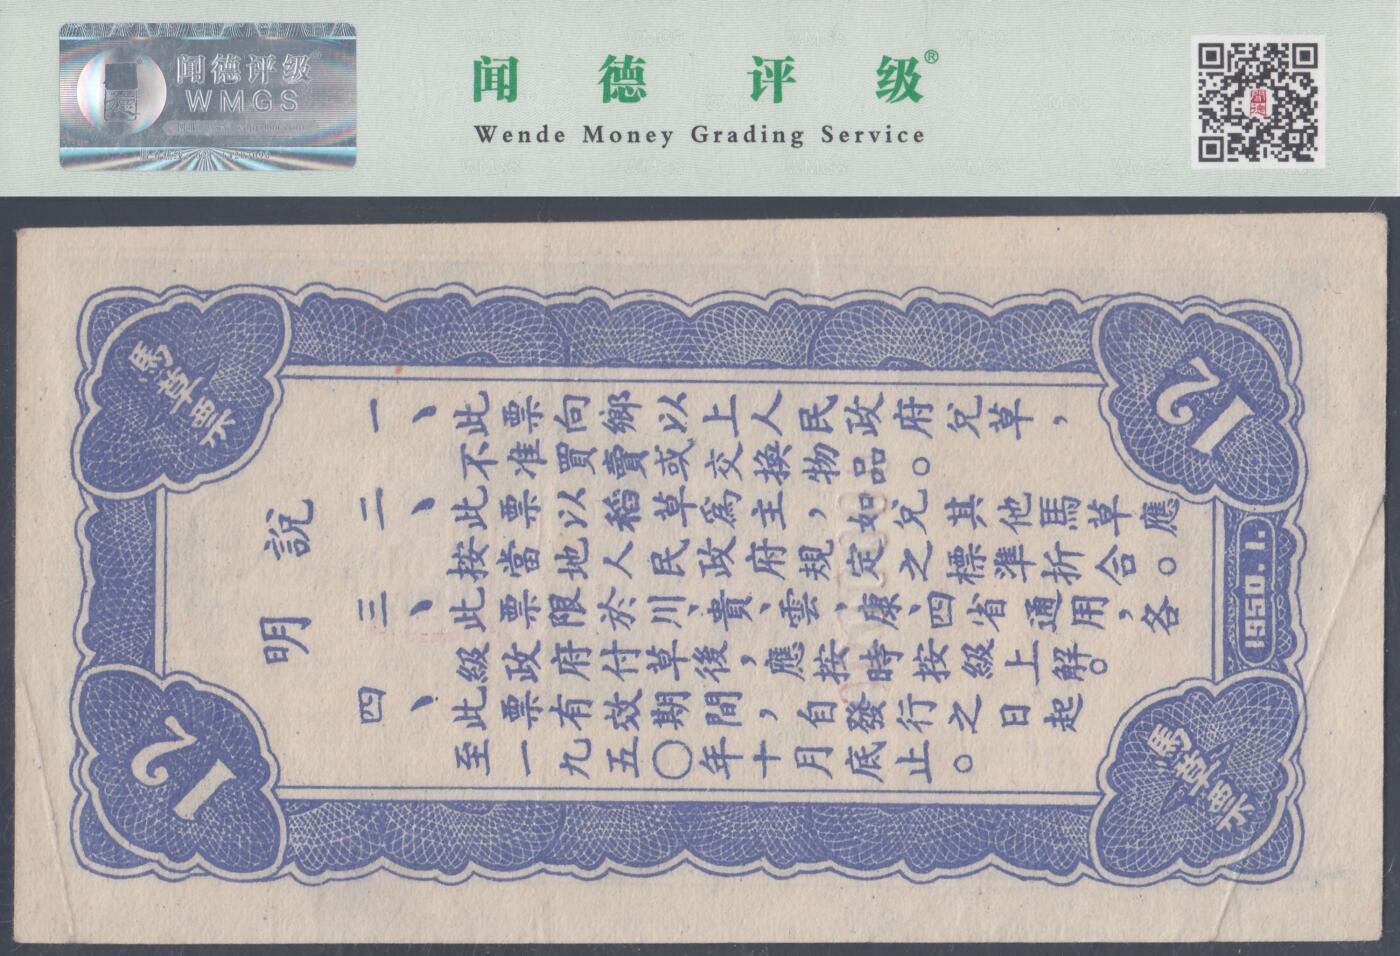 闻德评级
WMGS
闻 德 评 级®
Wende Money Grading Service
馬草票
12
說明
一、此票向鄉以上人民政府兌草，
不准買賣或交換物品。
二、此票以稻草爲主，如兌其他馬草應
按當地人民政府規定之標準折合。
三、此票限於川、貴、雲、康、四省通用，各
級政府付草後，應按時按級上解。
四、此票有效期間，自發行之日起
至一九五〇年十月底止。
1950. 1.
12
馬草票